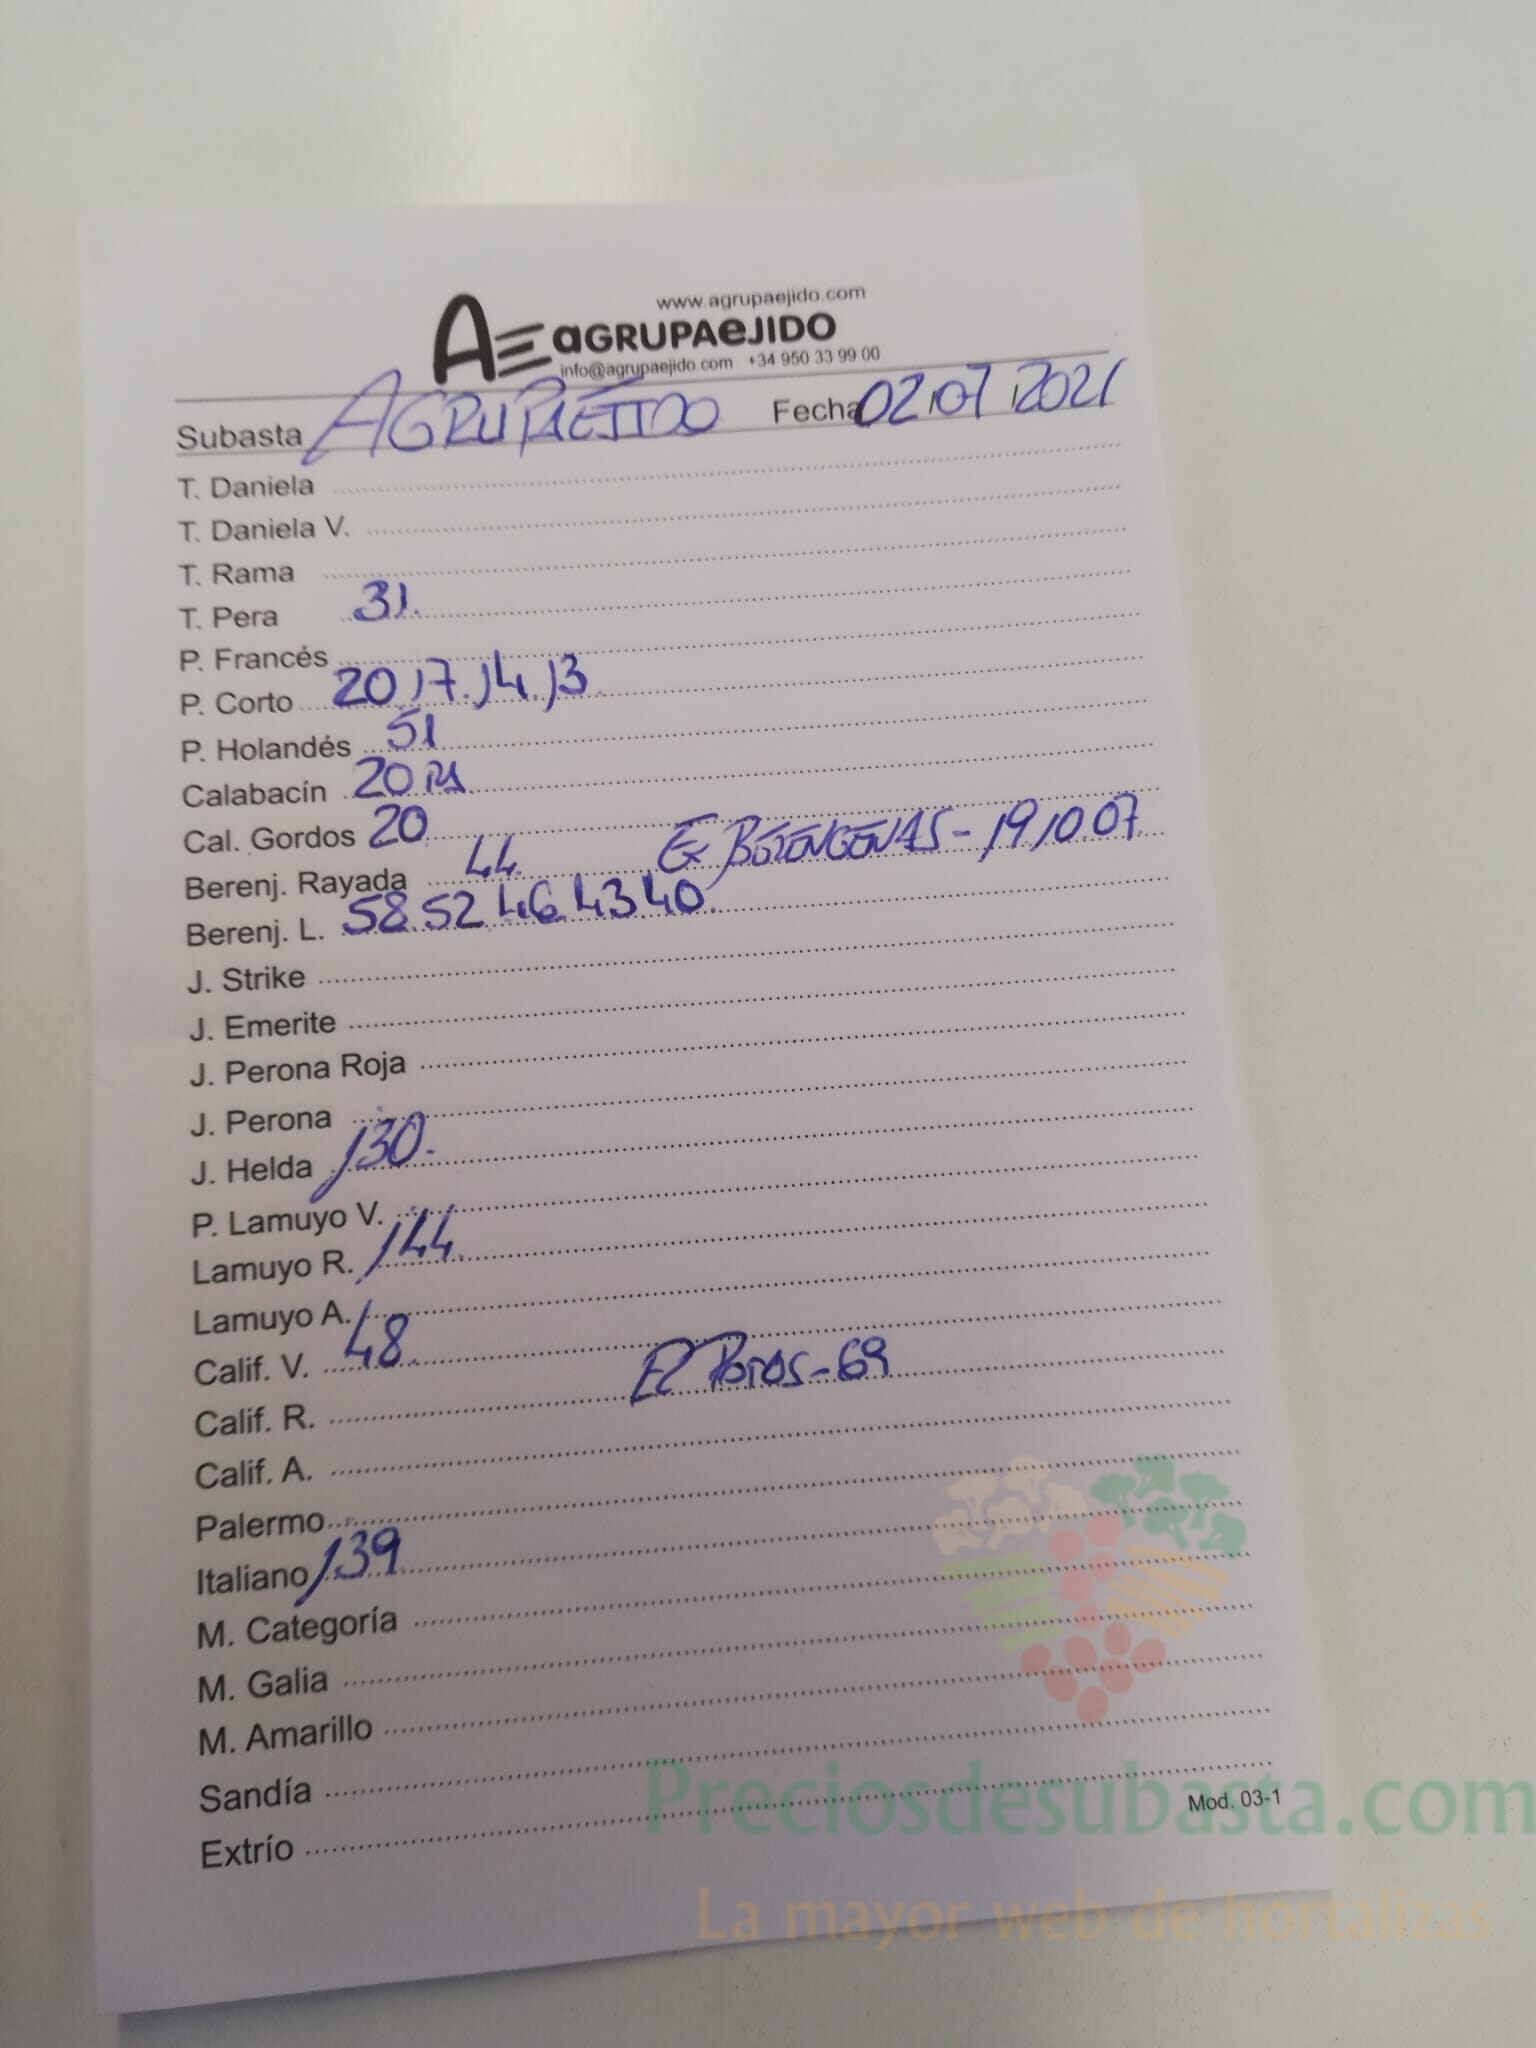 www.agrupaejido.com
AE aGRUPAeJIDO
info@agrupaejido.com +34 950 33 99 00
Subasta AGRUPAEJIDO Fecha 02/07/2021
T. Daniela
T. Daniela V.
T. Rama
T. Pera 31.
P. Francés
P. Corto 20.17.14.13.
P. Holandés 51
Calabacín 20
Cal. Gordos 20
Berenj. Rayada 44. BERENGENAS - 19.10.07.
Berenj. L. 58.52.46.43.40.
J. Strike
J. Emerite
J. Perona Roja
J. Perona
J. Helda 130.
P. Lamuyo V.
Lamuyo R. 144.
Lamuyo A.
Calif. V. 48.
Calif. R. - 69
Calif. A.
Palermo
Italiano 139
M. Categoría
M. Galia
M. Amarillo
Sandía
Extrío
Mod. 03-1
Preciosdesubasta.com
La mayor web de hortalizas